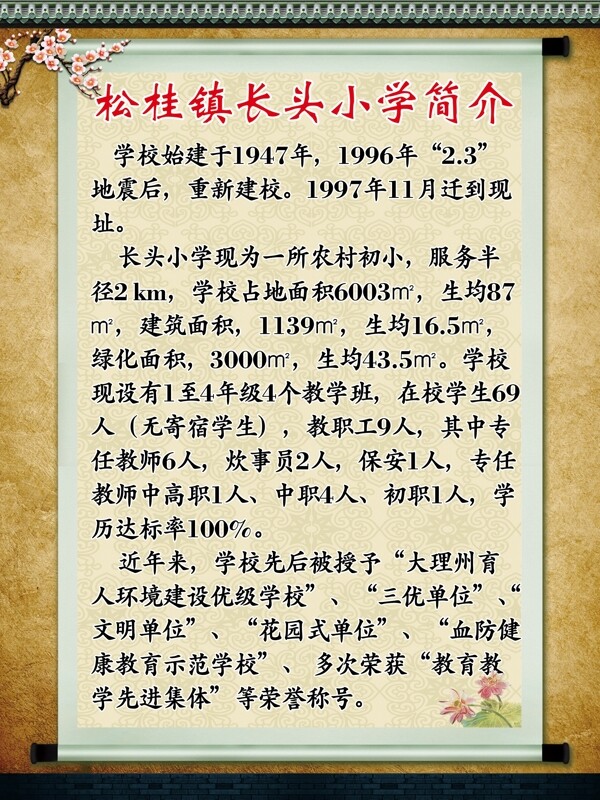 松桂镇长头小学简介
学校始建于1947年，1996年“2.3”
地震后，重新建校。1997年11月迁到现
址。
长头小学现为一所农村初小，服务半
径2 km，学校占地面积6003㎡，生均87
㎡，建筑面积，1139㎡，生均16.5㎡，
绿化面积，3000㎡，生均43.5㎡。学校
现设有1至4年级4个教学班，在校学生69
人（无寄宿学生），教职工9人，其中专
任教师6人，炊事员2人，保安1人，专任
教师中高职1人、中职4人、初职1人，学
历达标率100%。
近年来，学校先后被授予“大理州育
人环境建设优级学校”、“三优单位”、“
文明单位”、“花园式单位”、“血防健
康教育示范学校”、 多次荣获“教育教
学先进集体”等荣誉称号。